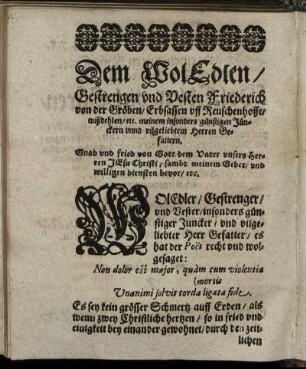 Dem WolEdlen/
Gestrengen vnd Vesten Friederich
von der Gröben/ Erbsassen vff
etc. meinem insonders günstigen Jün-
ckern vnnd vilgeliebten Herren Ge-
fattern.
Gnad vnd fried von Gott dem Vater vnsers Her-
ren JEsu Christi/ sambt meinem Gebet/ vnd
willigen diensten bevor/ etc.
WOlEdler/ Gestrenger/
vnd Vester/ insonders gün-
stiger Juncker/ vnd vilge-
liebter Herr Gefatter/ es
hat der Poët recht vnd wol
gesaget:
Non dolor est major, quàm cum violentia
mortis
Unanimi solvit corda ligata fide.
Es sey kein grösser Schmertz auff Erden/ als
wenn zwey Christliche hertzen/ so in fried vnd
einigkeit bey einander gewohnet/ durch den zeit-
lichen